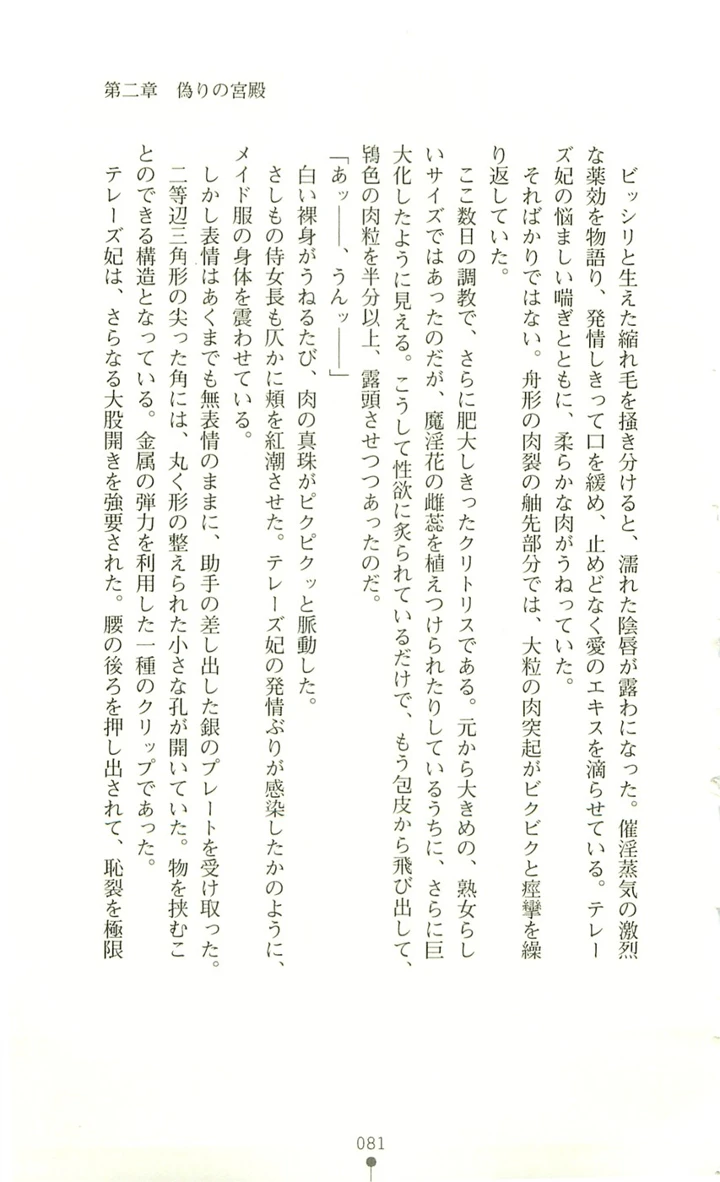 第二章　偽りの宮殿
　ビッシリと生えた縮れ毛を掻き分けると、濡れた陰唇が露わになった。催淫蒸気の激烈
な薬効を物語り、発情しきって口を緩め、止めどなく愛のエキスを滴らせている。テレー
ズ妃の悩ましい喘ぎとともに、柔らかな肉がうねっていた。
　そればかりではない。舟形の肉裂の舳先部分では、大粒の肉突起がビクビクと痙攣を繰
り返していた。
　ここ数日の調教で、さらに肥大しきったクリトリスである。元から大きめの、熟女らし
いサイズではあったのだが、魔淫花の雌蕊を植えつけられたりしているうちに、さらに巨
大化したように見える。こうして性欲に炙られているだけで、もう包皮から飛び出して、
鴇色の肉粒を半分以上、露頭させつつあったのだ。
「あッ――、うんッ――」
　白い裸身がうねるたび、肉の真珠がピクピクッと脈動した。
　さしもの侍女長も仄かに頬を紅潮させた。テレーズ妃の発情ぶりが感染したかのように、
メイド服の身体を震わせている。
　しかし表情はあくまでも無表情のままに、助手の差し出した銀のプレートを受け取った。
　二等辺三角形の尖った角には、丸く形の整えられた小さな孔が開いていた。物を挟むこ
とのできる構造となっている。金属の弾力を利用した一種のクリップであった。
　テレーズ妃は、さらなる大股開きを強要された。腰の後ろを押し出されて、恥裂を極限
081